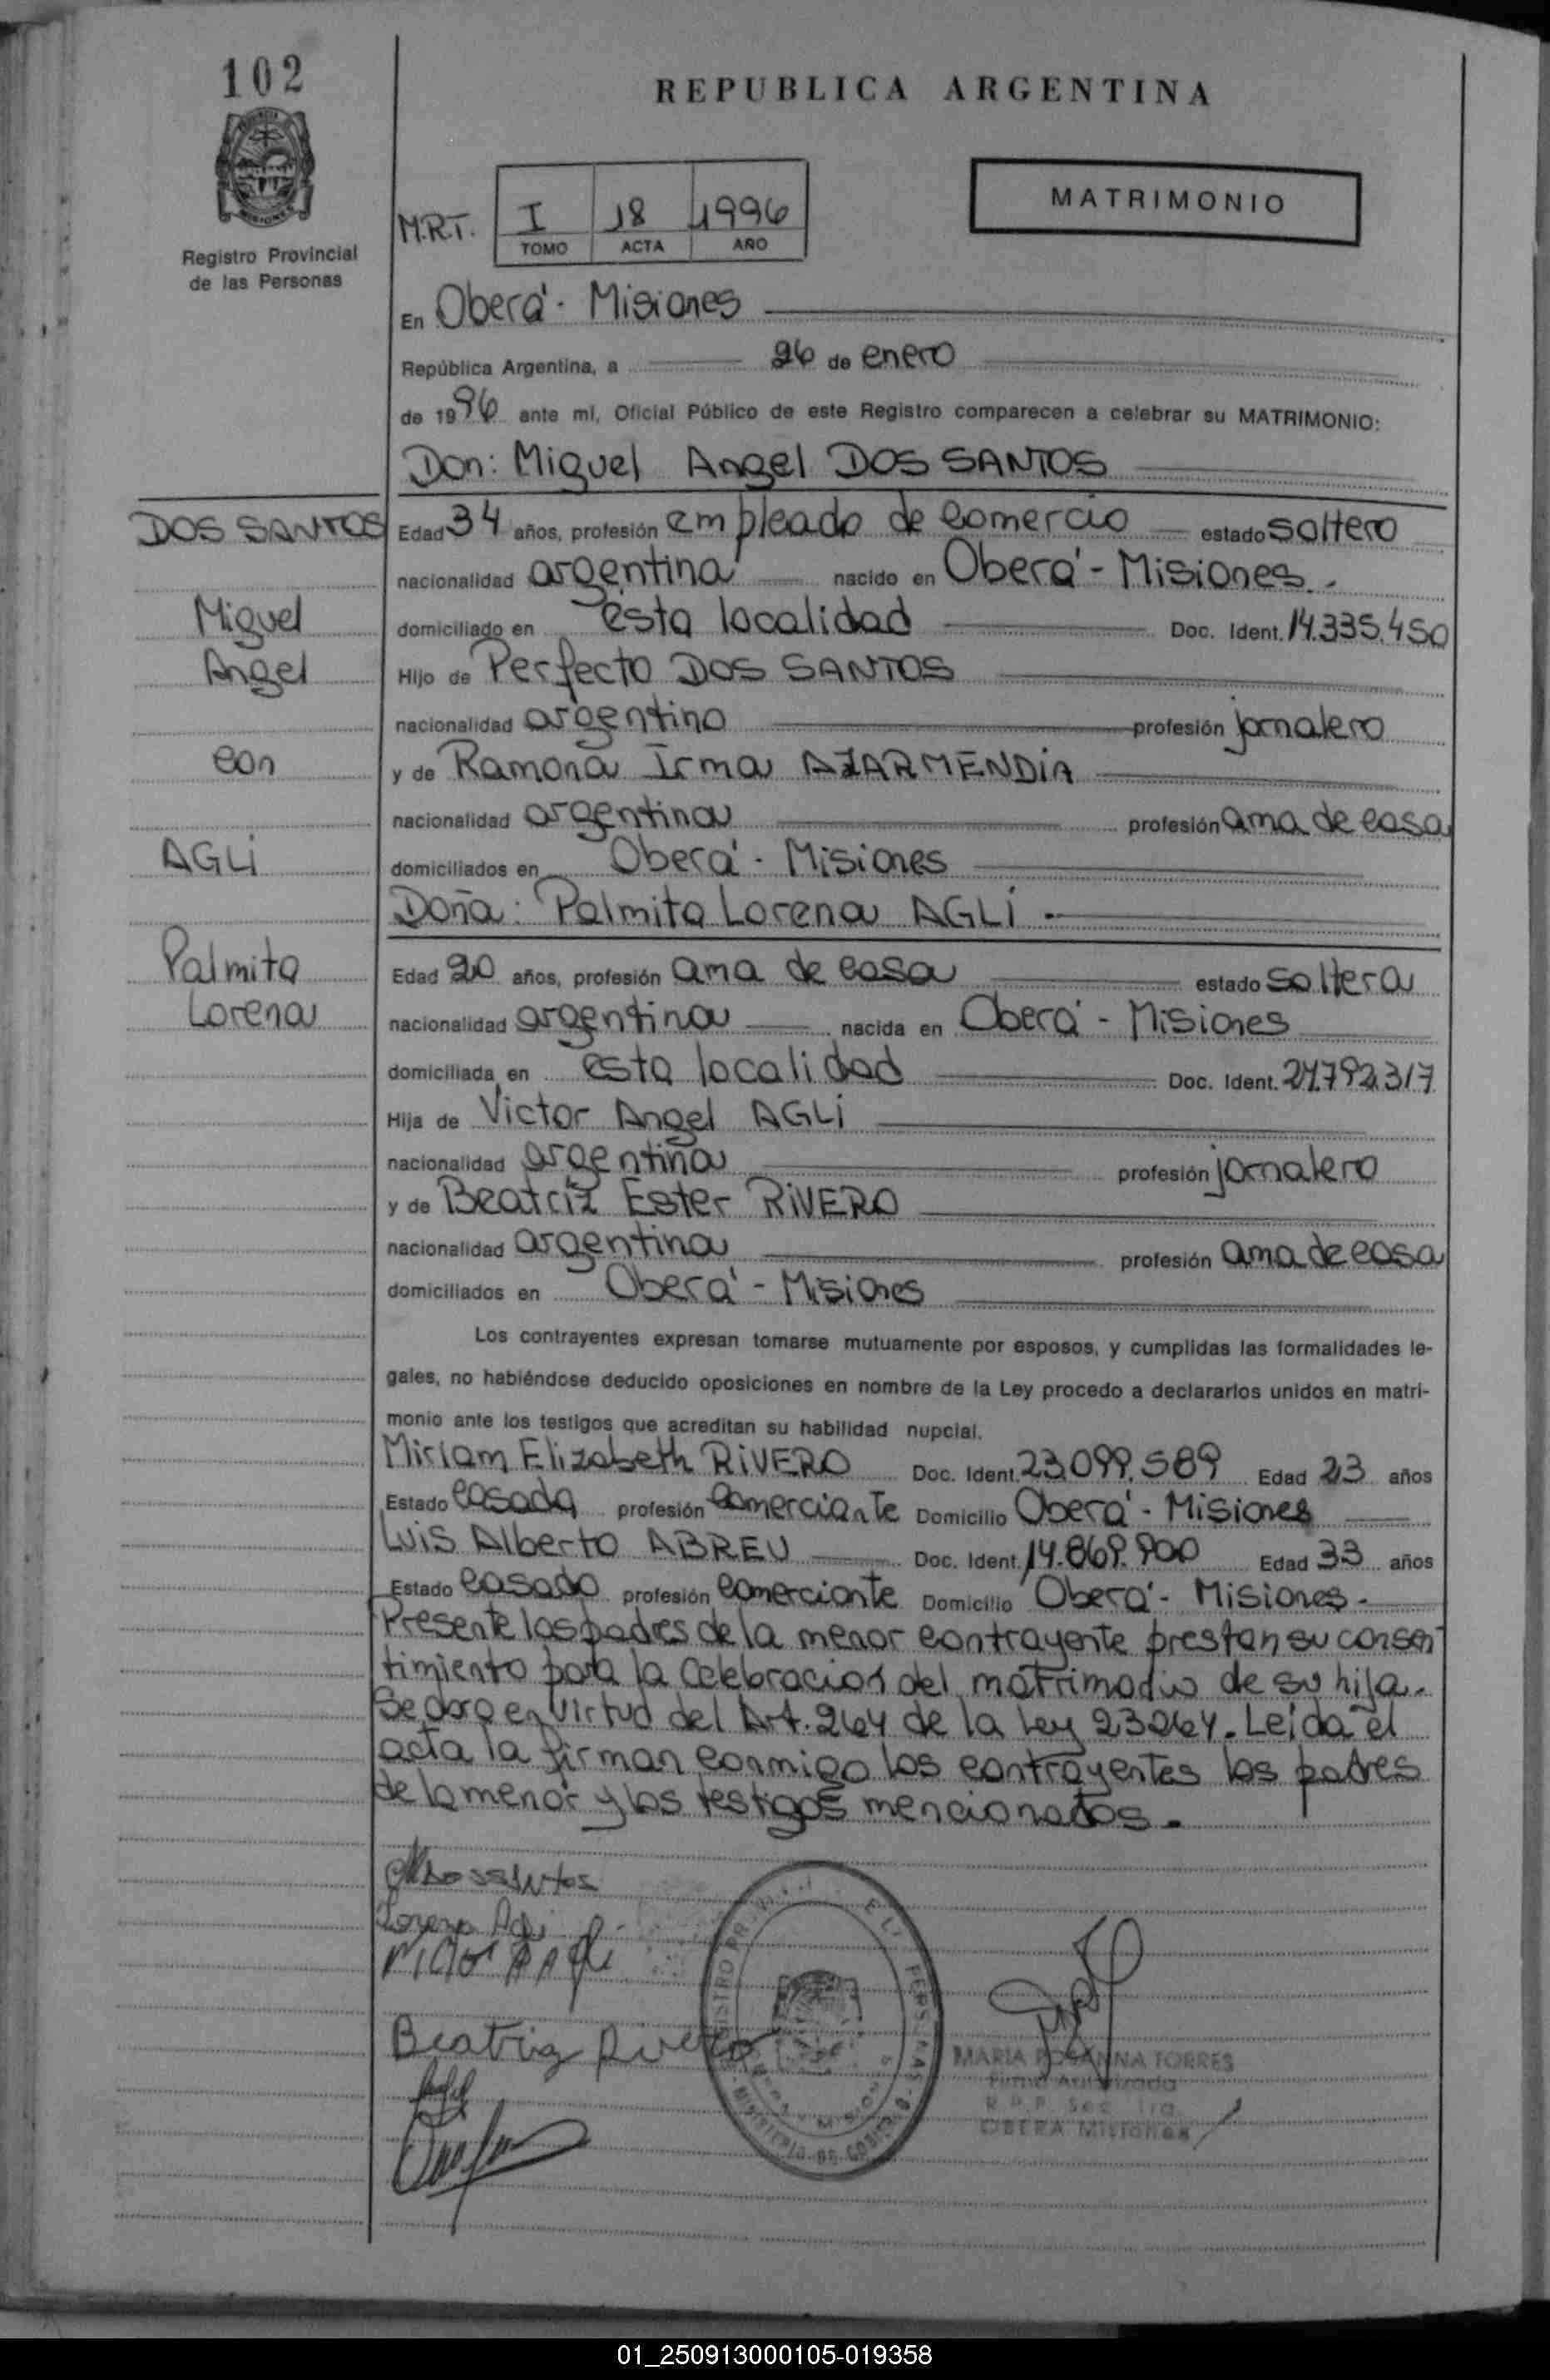 102
REPUBLICA ARGENTINA
MATRIMONIO
M.R.T. I 18 1996
TOMO ACTA AÑO
Registro Provincial
de las Personas
En Oberá - Misiones
República Argentina, a 26 de enero
de 1996 ante mí, Oficial Público de este Registro comparecen a celebrar su MATRIMONIO:
Don: Miguel Angel DOS SANTOS
DOS SANTOS
Miguel
Angel
con
AGLI
Palmita
Lorena
Edad 34 años, profesión empleado de comercio estado soltero
nacionalidad argentina nacido en Oberá - Misiones.
domiciliado en ésta localidad Doc. Ident. 14.335.450
Hijo de Perfecto DOS SANTOS
nacionalidad argentino profesión jornalero
y de Ramona Irma AZARMENDIA
nacionalidad argentina profesión ama de casa
domiciliados en Oberá - Misiones
Doña: Palmita Lorena AGLI.
Edad 20 años, profesión ama de casa estado soltera
nacionalidad argentina nacida en Oberá - Misiones
domiciliada en esta localidad Doc. Ident.
Hija de Victor Angel AGLI
nacionalidad argentina profesión jornalero
y de Beatriz Ester RIVERO
nacionalidad argentina profesión ama de casa
domiciliados en Oberá - Misiones
Los contrayentes expresan tomarse mutuamente por esposos, y cumplidas las formalidades le-
gales, no habiéndose deducido oposiciones en nombre de la Ley procedo a declararlos unidos en matri-
monio ante los testigos que acreditan su habilidad nupcial.
Miriam Elizabeth RIVERO Doc. Ident. 23.099.589 Edad 23 años
Estado casada profesión comerciante Domicilio Oberá - Misiones
Luis Alberto ABREU Doc. Ident. 14.869.900 Edad 33 años
Estado casado profesión comerciante Domicilio Oberá - Misiones.
Presente los padres de la menor contrayente prestan su consen
timiento para la celebración del matrimonio de su hija.
en virtud del Art. 264 de la Ley 23264. Leída el
acta la firman conmigo los contrayentes los padres
de la menor y los testigos mencionados.
Dos santos
Lorena Agli
Victor A Agli
Beatriz Rivero
MARIA ROSANNA TORRES
Firma Autorizada
R.P.P. Sec. 1ra.
OBERA Misiones
01_250913000105-019358